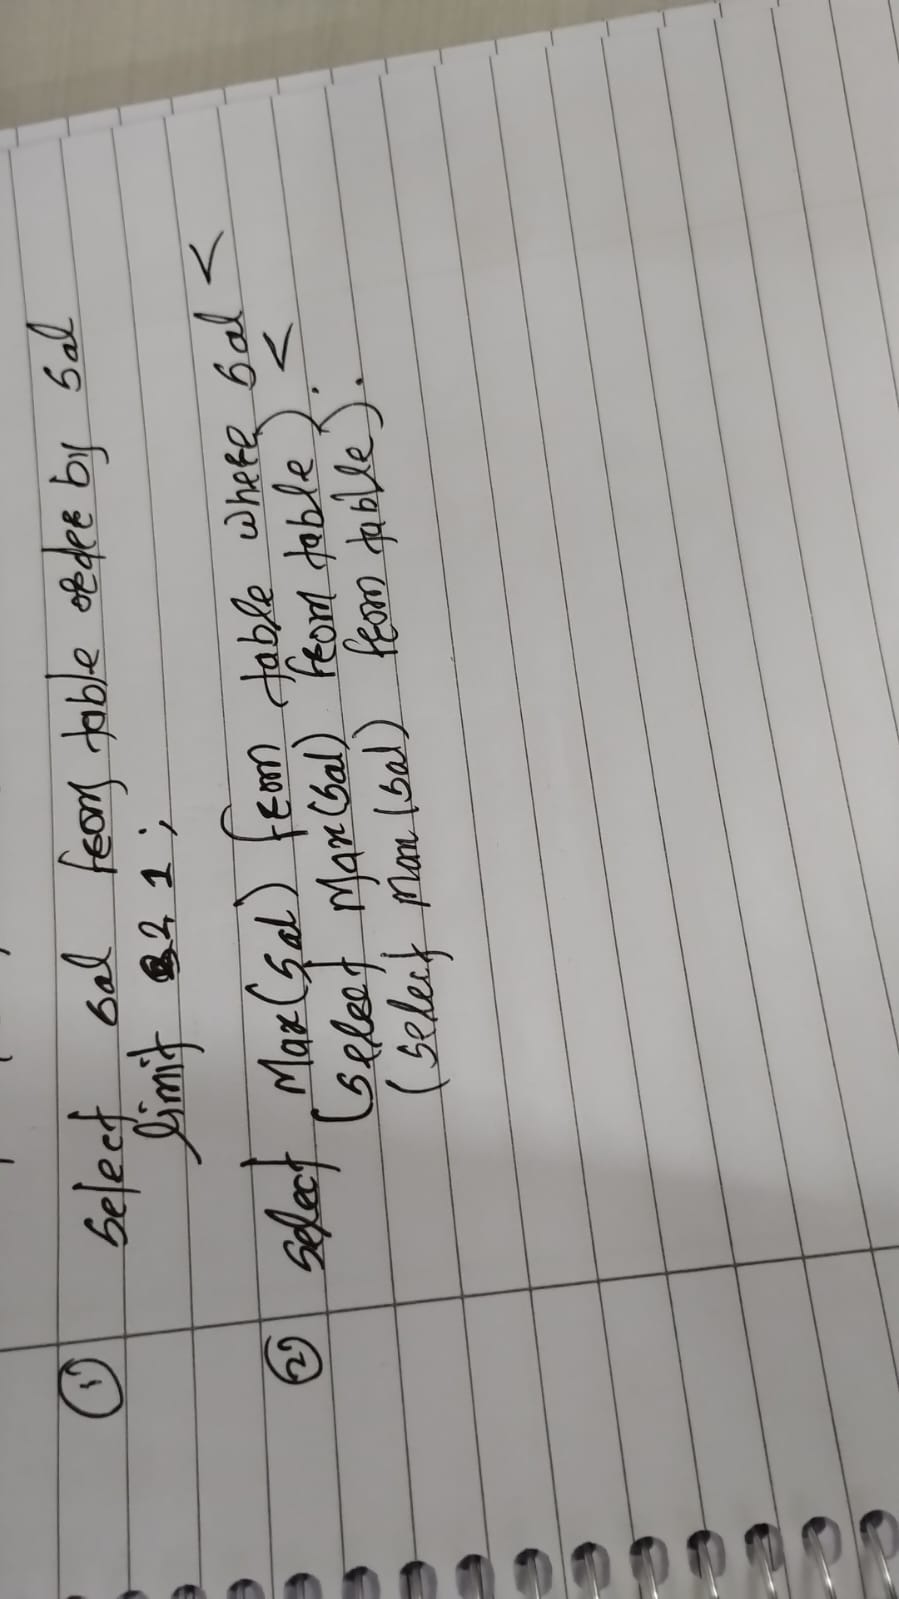 1) Select sal from table order by sal
limit 2 1 ;
2) select Max(sal) from table where sal <
(select Max(sal) from table) . <
(select Max(sal) from table).